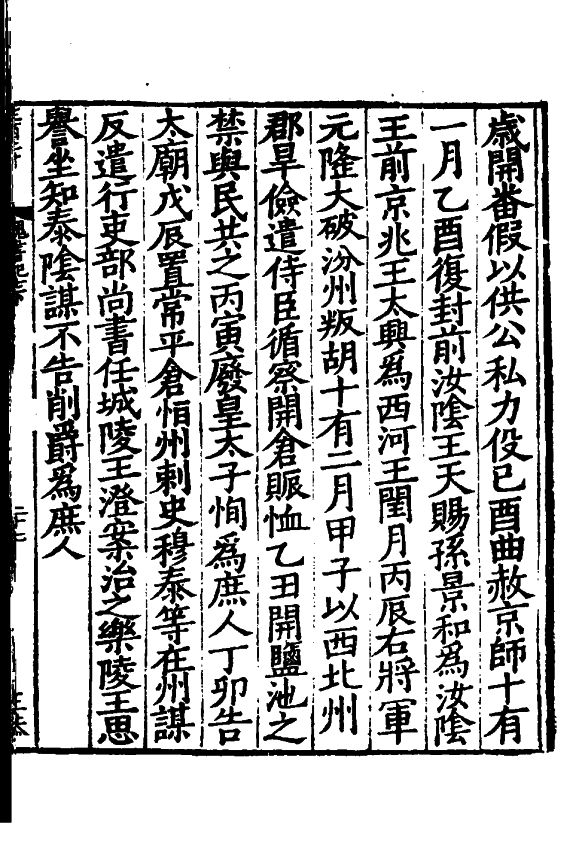 歲開番假以供公私力役已酉曲赦京師十有
一月乙酉復封前汝陰王天賜孫景和爲汝陰
王前京兆王太興爲西河王閏月丙辰右將軍
元隆大破汾州叛胡十有二月甲子以西北州
郡旱儉遣侍臣循察開倉賑恤乙丑開鹽池之
禁與民共之丙寅廢皇太子恂爲庶人丁卯告
太廟戊辰置常平倉恒州刺史穆泰等在州謀
反遣行吏部尚書任城陵王澄案治之樂陵王思
譽坐知泰陰謀不告削爵爲庶人